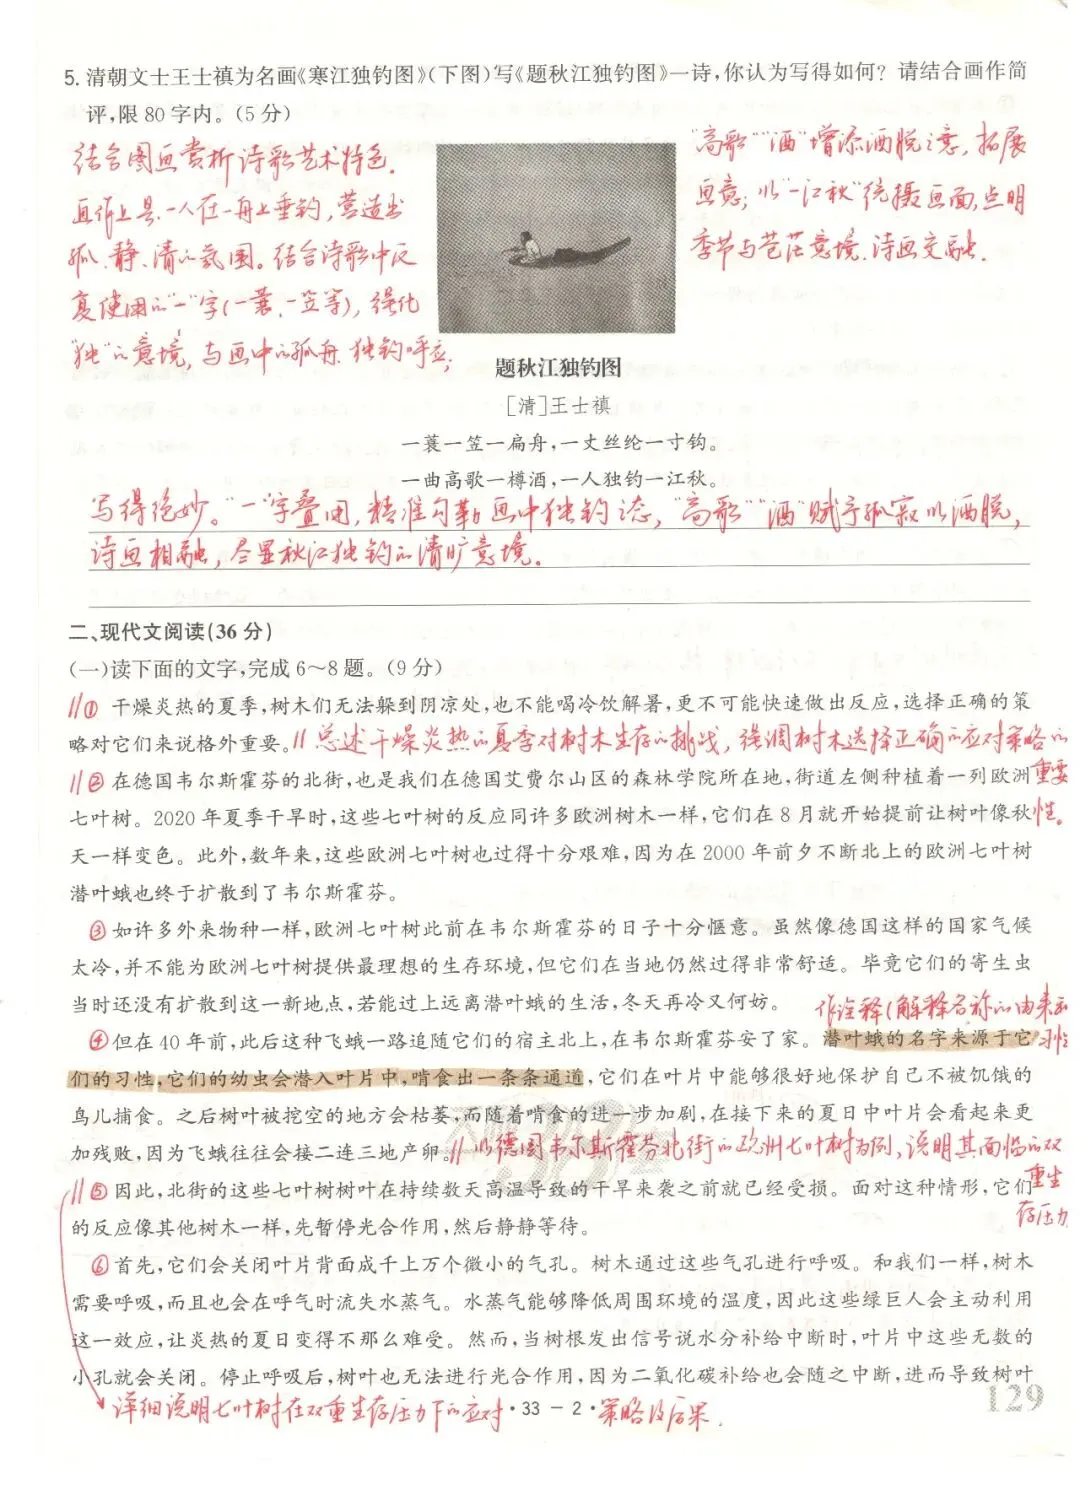 5. 清朝文士王士禛为名画《寒江独钓图》(下图)写《题秋江独钓图》一诗,你认为写得如何? 请结合画作简
评,限 80 字内。(5 分)
结合图画赏析诗歌艺术特色.
画作上是一人在一舟上垂钓,营造出
孤、静、清的氛围。结合诗歌中反
复使用的“一”字(一蓑、一笠等),强化
“独”的意境,与画中的孤舟、独钓呼应;
“高歌”“酒”增添洒脱之意,拓展
画意;以“一江秋”统摄画面,点明
季节与苍茫意境.诗画交融.
题秋江独钓图
[清]王士禛
一蓑一笠一扁舟,一丈丝纶一寸钩。
一曲高歌一樽酒,一人独钓一江秋。
写得绝妙。“一”字叠用,精准勾勒画中独钓之态,“高歌”“酒”赋予孤寂以洒脱,
诗画相融,尽显秋江独钓的清旷意境.
二、现代文阅读(36 分)
(一)读下面的文字,完成 6～8 题。(9 分)
① 干燥炎热的夏季,树木们无法躲到阴凉处,也不能喝冷饮解暑,更不可能快速做出反应,选择正确的策
略对它们来说格外重要。 // 总述干燥炎热的夏季对树木生存的挑战,强调树木选择正确的应对策略的
重要
性。
② 在德国韦尔斯霍芬的北街,也是我们在德国艾费尔山区的森林学院所在地,街道左侧种植着一列欧洲
七叶树。2020 年夏季干旱时,这些七叶树的反应同许多欧洲树木一样,它们在 8 月就开始提前让树叶像秋
天一样变色。此外,数年来,这些欧洲七叶树也过得十分艰难,因为在 2000 年前夕不断北上的欧洲七叶树
潜叶蛾也终于扩散到了韦尔斯霍芬。
③ 如许多外来物种一样,欧洲七叶树此前在韦尔斯霍芬的日子十分惬意。虽然像德国这样的国家气候
太冷,并不能为欧洲七叶树提供最理想的生存环境,但它们在当地仍然过得非常舒适。毕竟它们的寄生虫
当时还没有扩散到这一新地点,若能过上远离潜叶蛾的生活,冬天再冷又何妨。
作诠释(解释名称的由来和
习性
④ 但在 40 年前,此后这种飞蛾一路追随它们的宿主北上,在韦尔斯霍芬安了家。潜叶蛾的名字来源于它
们的习性,它们的幼虫会潜入叶片中,啃食出一条条通道,它们在叶片中能够很好地保护自己不被饥饿的
鸟儿捕食。之后树叶被挖空的地方会枯萎,而随着啃食的进一步加剧,在接下来的夏日中叶片会看起来更
加残败,因为飞蛾往往会接二连三地产卵。 // 以德国韦尔斯霍芬北街的欧洲七叶树为例,说明其面临的双
重生
存压力
⑤ 因此,北街的这些七叶树树叶在持续数天高温导致的干旱来袭之前就已经受损。面对这种情形,它们
的反应像其他树木一样,先暂停光合作用,然后静静等待。
⑥ 首先,它们会关闭叶片背面成千上万个微小的气孔。树木通过这些气孔进行呼吸。和我们一样,树木
需要呼吸,而且也会在呼气时流失水蒸气。水蒸气能够降低周围环境的温度,因此这些绿巨人会主动利用
这一效应,让炎热的夏日变得不那么难受。然而,当树根发出信号说水分补给中断时,叶片中这些无数的
小孔就会关闭。停止呼吸后,树叶也无法进行光合作用,因为二氧化碳补给也会随之中断,进而导致树叶
详细说明七叶树在双重生存压力下的应对策略及后果.
·33 － 2·
129